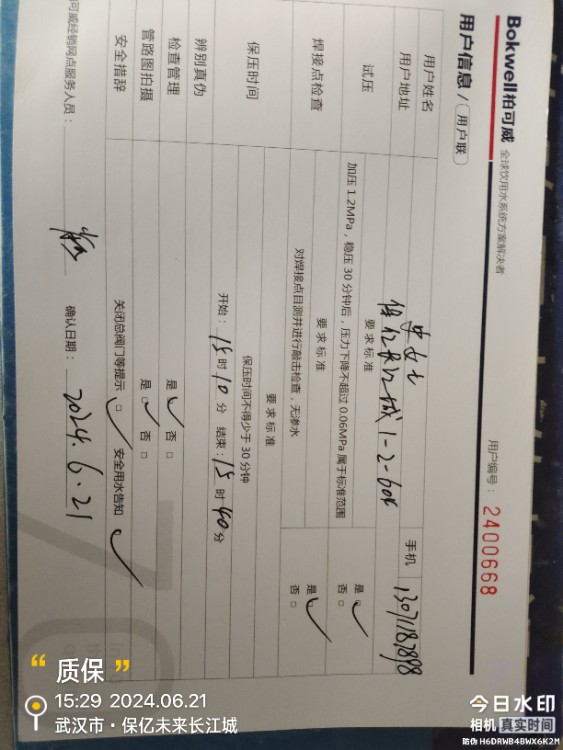 Bokwell柏可威 全球饮用水系统方案解决者
用户信息 / 用户联
用户编号: 2400668
用户姓名 史女士 手机
用户地址 保亿未来城1-2-604
试压 要求标准
加压 1.2MPa,稳压 30 分钟后,压力下降不超过 0.06MPa 属于标准范围 是 ☑ 否 □
焊接点检查 要求标准
对焊接点目测并进行敲击检查,无渗水 是 ☑ 否 □
保压时间 要求标准
保压时间不得少于 30 分钟
开始: 15 时 10 分 结束: 15 时 40 分
辨别真伪 是 ☑ 否 □
检查管理 是 ☑ 否 □
管路图拍摄
安全措辞 关闭总阀门等提示 ☑ 安全用水告知 ✓
可威经销网点服务人员: 确认日期: 2024.6.21
“质保”
15:29 2024.06.21
武汉市·保亿未来长江城
今日水印
相机 真实时间
防伪 H6DRWB4BWX6K2M